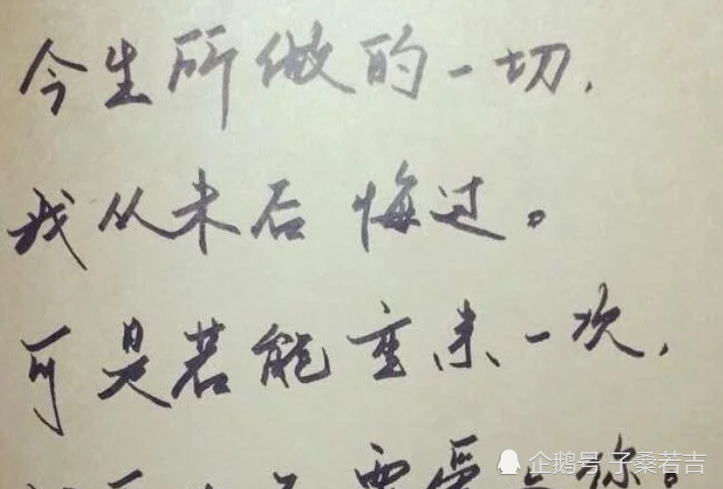 今生所做的一切，
我从未后悔过。
可是若能重来一次，
要爱上你。
企鹅号 子桑若吉